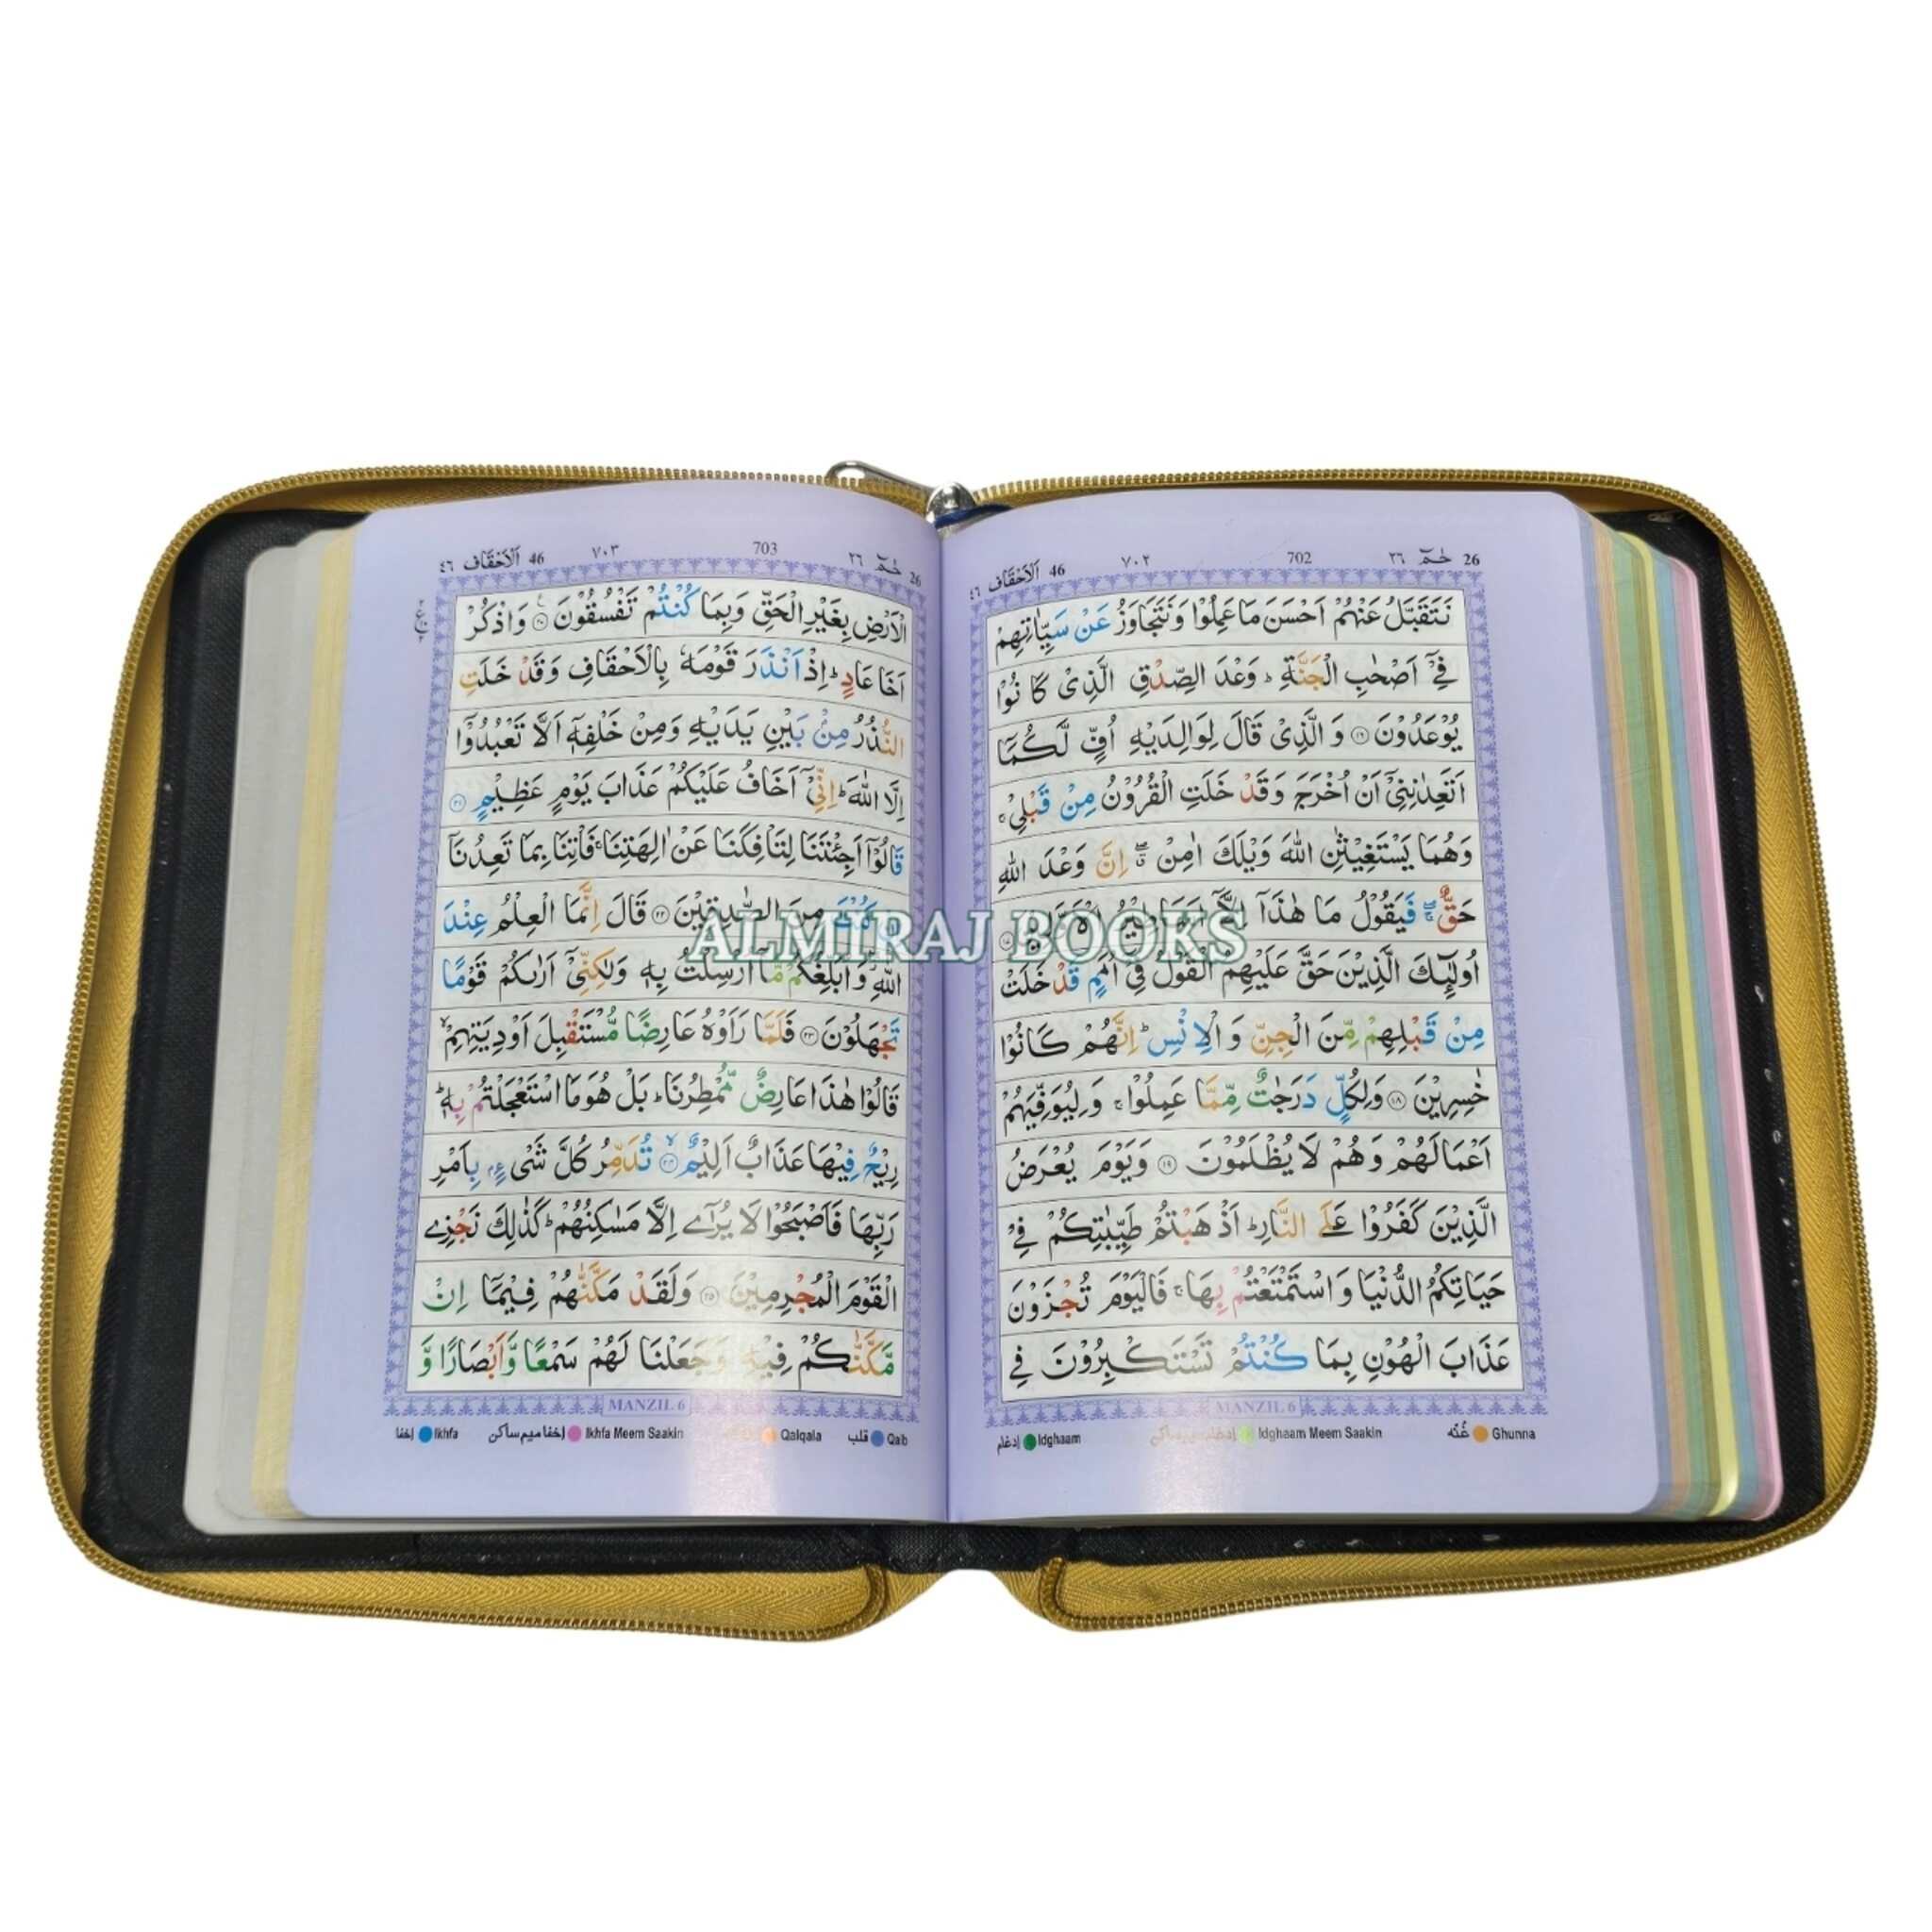 26 حٰمٓ ٢٦ 702 ٧٠٢ 46 اَلْاَحْقَاف ٤٦
نَتَقَبَّلُ عَنْهُمْ اَحْسَنَ مَا عَمِلُوْا وَنَتَجَاوَزُ عَنْ سَيِّاٰتِهِمْ
فِيْٓ اَصْحٰبِ الْجَنَّةِ ؕ وَعْدَ الصِّدْقِ الَّذِيْ كَا نُوْا
يُوْعَدُوْنَ ۝١٦ وَ الَّذِيْ قَالَ لِوَالِدَيْهِ اُفٍّ لَّكُمَا
اَتَعِدٰنِنِيْٓ اَنْ اُخْرَجَ وَقَدْ خَلَتِ الْقُرُوْنُ مِنْ قَبْلِيْ ۚ
وَهُمَا يَسْتَغِيْثٰنِ اللّٰهَ وَيْلَكَ اٰمِنْ ۖۗ اِنَّ وَعْدَ اللّٰهِ
حَقٌّ ۖۚ فَيَقُوْلُ مَا هٰذَآ اِلَّآ
اُولٰٓئِكَ الَّذِيْنَ حَقَّ عَلَيْهِمُ الْقَوْلُ فِيْٓ اُمَمٍ قَدْ خَلَتْ
مِنْ قَبْلِهِمْ مِّنَ الْجِنِّ وَ الْاِنْسِ ؕ اِنَّهُمْ كَانُوْا
خٰسِرِيْنَ ۝١٨ وَلِكُلٍّ دَرَجٰتٌ مِّمَّا عَمِلُوْا ۚ وَلِيُوَفِّيَهُمْ
اَعْمَالَهُمْ وَهُمْ لَا يُظْلَمُوْنَ ۝١٩ وَيَوْمَ يُعْرَضُ
الَّذِيْنَ كَفَرُوْا عَلَى النَّارِ ؕ اَذْهَبْتُمْ طَيِّبٰتِكُمْ فِيْ
حَيَاتِكُمُ الدُّنْيَا وَاسْتَمْتَعْتُمْ بِهَا ۚ فَالْيَوْمَ تُجْزَوْنَ
عَذَابَ الْهُوْنِ بِمَا كُنْتُمْ تَسْتَكْبِرُوْنَ فِي
MANZIL 6
إدغام Idghaam Idghaam Meem Saakin غُنّه Ghunna
26 حٰمٓ ٢٦ 703 ٧٠٣ 46 اَلْاَحْقَاف ٤٦
الْاَرْضِ بِغَيْرِ الْحَقِّ وَبِمَا كُنْتُمْ تَفْسُقُوْنَ ۝٢٠ وَاذْكُرْ
اَخَا عَادٍ ؕ اِذْ اَنْذَرَ قَوْمَهٗ بِالْاَحْقَافِ وَقَدْ خَلَتِ
النُّذُرُ مِنْۢ بَيْنِ يَدَيْهِ وَمِنْ خَلْفِهٖٓ اَلَّا تَعْبُدُوْٓا
اِلَّا اللّٰهَ ؕ اِنِّيْٓ اَخَافُ عَلَيْكُمْ عَذَابَ يَوْمٍ عَظِيْمٍ ۝٢١
قَالُوْٓا اَجِئْتَنَا لِتَاْفِكَنَا عَنْ اٰلِهَتِنَا ۚ فَاْتِنَا بِمَا تَعِدُنَآ
مِنَ الصّٰدِقِيْنَ ۝٢٢ قَالَ اِنَّمَا الْعِلْمُ عِنْدَ
اللّٰهِ ؗ وَاُبَلِّغُكُمْ مَّآ اُرْسِلْتُ بِهٖ وَلٰكِنِّيْٓ اَرٰىكُمْ قَوْمًا
تَجْهَلُوْنَ ۝٢٣ فَلَمَّا رَاَوْهُ عَارِضًا مُّسْتَقْبِلَ اَوْدِيَتِهِمْ ۙ
قَالُوْا هٰذَا عَارِضٌ مُّمْطِرُنَا ؕ بَلْ هُوَ مَا اسْتَعْجَلْتُمْ بِهٖ ؕ
رِيْحٌ فِيْهَا عَذَابٌ اَلِيْمٌ ۝٢٤ ۙ تُدَمِّرُ كُلَّ شَيْءٍۭ بِاَمْرِ
رَبِّهَا فَاَصْبَحُوْا لَا يُرٰٓى اِلَّا مَسٰكِنُهُمْ ؕ كَذٰلِكَ نَجْزِي
الْقَوْمَ الْمُجْرِمِيْنَ ۝٢٥ وَلَقَدْ مَكَّنّٰهُمْ فِيْمَآ اِنْ
مَّكَّنّٰكُمْ فِيْهِ وَجَعَلْنَا لَهُمْ سَمْعًا وَّاَبْصَارًا وَّ
MANZIL 6
إخفا Ikhfa إخفا ميم ساكن Ikhfa Meem Saakin Qalqala قلب Qalb
ALMIRAJ BOOKS